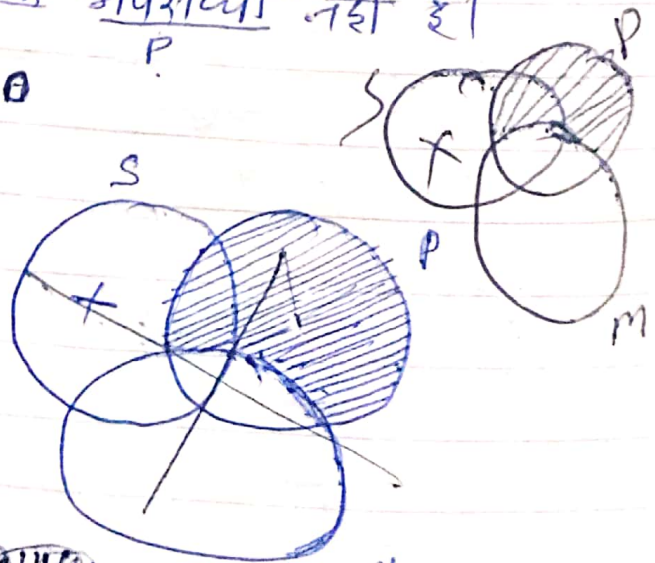 नहीं है।
P
S
P
X
M
S
P
X